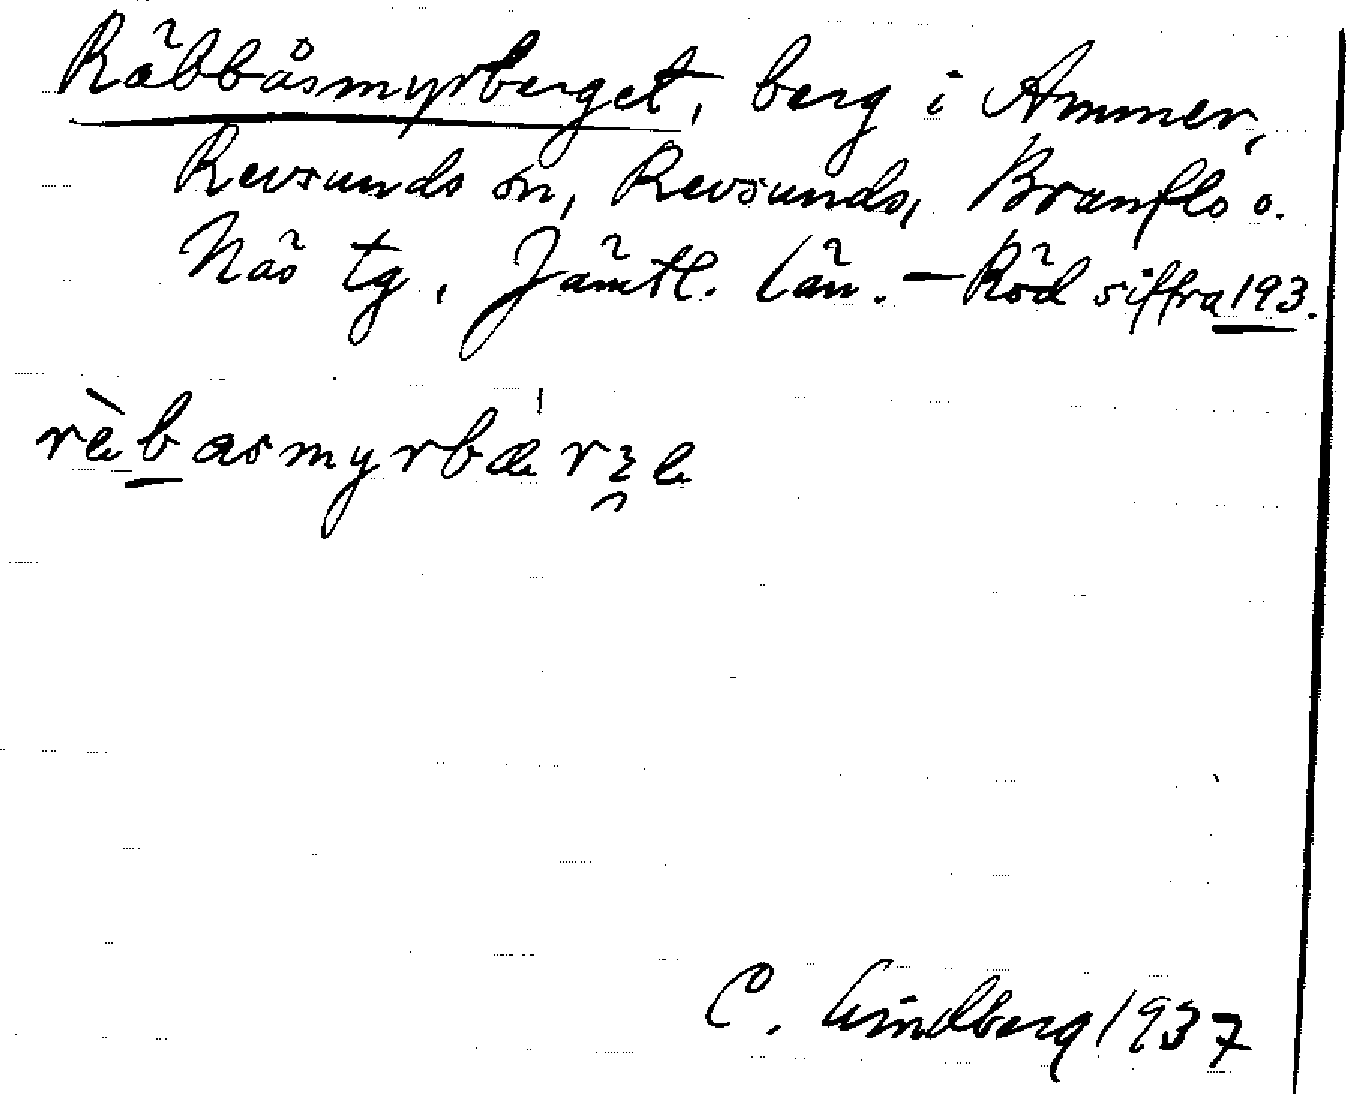 Räbbåsmyrberget, berg i Ammer,
Revsunds sn, Revsunds, Brunflo o.
Näs tg, Jämtl. län. – Röd siffra 193.
rèbasmyrbæ̍rʒe
C. Lindberg 1937